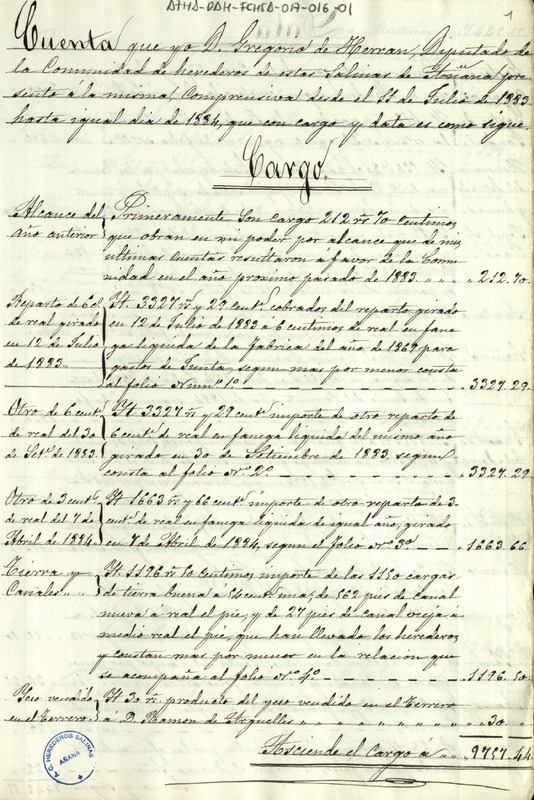 ATHA-DAH-FCHSA-017-016-01
1
Cuenta que yo D. Gregorio de Herran, Diputado de
la Comunidad de herederos de estas Salinas de Añana, pre
sento a la misma, Comprensiva desde el 11 de Julio de 1883
hasta igual dia de 1884, que con cargo y data es como sigue.
Cargo.
Alcance del año anterior
Primeramente son cargo 212 rs 70 centimos,
que obran en mi poder por alcance que de mis
ultimas cuentas resultaron a favor de la Comu
nidad en el año proximo pasado de 1883. " " " 212.70.
Reparto de 6 ct
de real girado
en 12 de Julio
de 1883.
It 3327 rs y 29 cents cobrados del reparto girado
en 12 de Julio de 1883 a 6 centimos de real en fane
ga liquida de la Fabrica del año de 1867 para
gastos de Junta, segun mas por menor consta
al folio num° 1° - - - - - 3327.29.
Otro de 6 cents
de real del 30
de Sete de 1883.
It 3327 rs y 29 cents importe de otro reparto de
6 cents de real en fanega liquida del mismo año
girado en 30 de Setiembre de 1883, segun
consta al folio n° 2° - - - - - 3327.29
Otro de 3 cents
de real del 7 de
Abril de 1884.
It 1663 rs y 66 cents importe de otro reparto de 3
cents de real en fanega liquida de igual año, girado
en 7 de Abril de 1884, segun el folio n° 3° - - - 1663.66.
Tierra y
Canales " "
It. 1196 rs 50 centimos, importe de las 1150 cargas
de tierra buena á 54 cents mas, de 562 pies de canal
nueva á real el pie, y de 27 pies de canal vieja á
medio real el pie, que han llevado los herederos
y constan mas por menor en la relacion que
se acompaña al folio n° 4° - - - - - 1196.50.
Yeso vendido
en el Terrero
It 30 rs producto del yeso vendido en el Terrero
á D. Ramon de Arguelles " " " " " " 30. "
Asciende el Cargo a " " 9757.44
T.C. HEREDEROS SALINAS
AÑANA